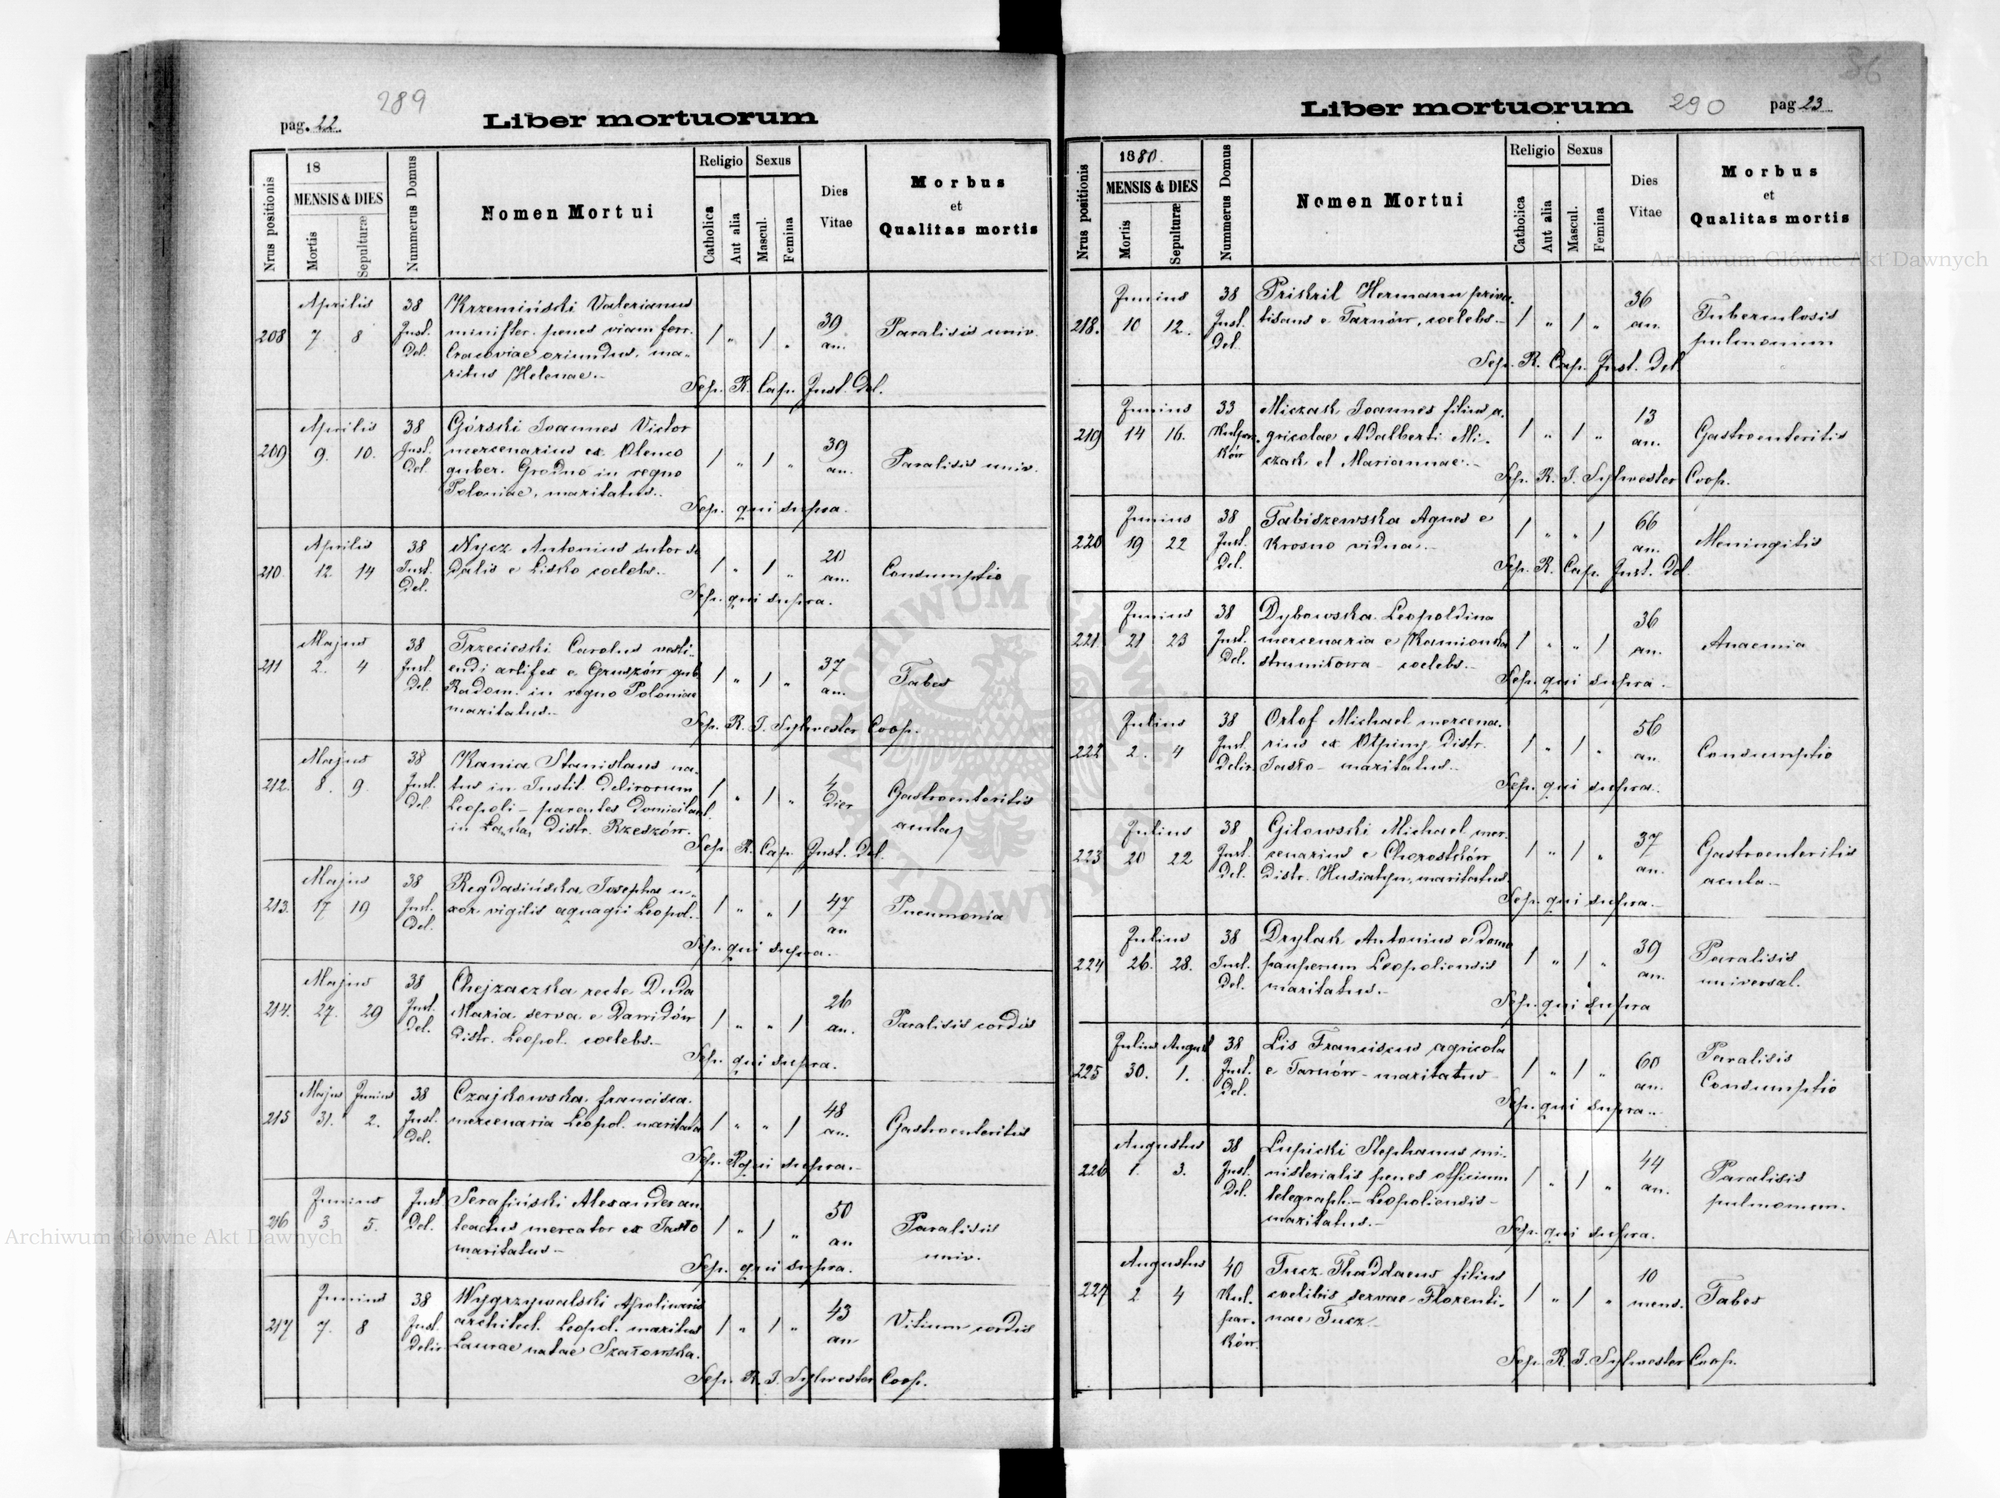 289
pag. 22.
Liber mortuorum
Nrus positionis
18
MENSIS & DIES
Mortis
Sepulturæ
Nummerus Domus
Nomen Mortui
Religio
Catholica
Aut alia
Sexus
Mascul.
Femina
Dies
Vitae
Morbus
et
Qualitas mortis
208
Aprilis
7 8
38
Inst.
Del.
Krzemiński Valerianus
minister penes viam ferr.
Cracoviae oriundus, ma-
ritus Helenae.-
1 " 1 "
39
an.
Paralisis univ.
Sep. R. Cap. Inst. Del.
209
Aprilis
9. 10.
38
Inst.
Del
Górski Joannes Victor
mercenarius ex Olenco
guber. Grodno in regno
Poloniae, maritatus.
1 " 1 "
39
an.
Paralisis univ.
Sep. qui supra.
210
Aprilis
12. 14
38
Inst.
Del.
Nycz Antonius sutor so
dalis e Lisko coelebs.
1 " 1 "
20
an.
Consumptio
Sep. qui supra.
211
Majus
2. 4
38
Inst.
Del.
Trzecieski Carolus vesti-
endi artifex e Gruszów gub.
Radom. in regno Poloniae
maritatus.
1 " 1 "
37
an.
Tabes
Sep. R. J. Sylwester Coop.
212.
Majus
8. 9.
38
Inst.
Del.
Kania Stanislaus na-
tus in Instit. Delirorum
Leopoli - parentes domicilant
in Łąka, Distr. Rzeszów.
1 " 1 "
4
dier
Gastroenteritis
acuta
Sep. R. Cap. Inst. Del.
213.
Majus
17 19
38
Inst.
Del.
Regdasińska Josepha u-
xor vigilis aquagii Leopol.
1 " " 1
47
an
Pneumonia
Sep. qui supra.
214.
Majus
27. 29
38
Inst.
Del.
Chejzaczka recte Duda
Maria serva e Dawidów
Distr. Leopol. coelebs.-
1 " " 1
26
an.
Paralisis cordis
Sep. qui supra.
215
Majus Junius
31. 2.
38
Inst.
Del.
Czajkowska francisca
mercenaria Leopol. maritata
1 " " 1
48
an.
Gastroenteritis
Sep. qui supra.-
216
Junius
3 5.
Inst
Del.
Serafiński Alexander an
teactus mercator ex Jasło
maritatus-
1 " 1 "
50
an
Paralisis
univ.
Sep. qui supra.
217
Junius
7. 8
38
Inst.
Delir
Wygrzywalski Apolinaris
architect. Leopol. maritus
Laurae natae Szatowska.
1 " 1 "
43
an
Vitium cordis
Sep. R. J. Sylwester Coop.
36
Liber mortuorum
290
pag 23
Nrus positionis
1880.
MENSIS & DIES
Mortis
Sepulturæ
Nummerus Domus
Nomen Mortui
Religio
Catholica
Aut alia
Sexus
Mascul.
Femina
Dies
Vitae
Morbus
et
Qualitas mortis
218.
Junius
10 12.
38
Inst.
Del.
Priskril Hermann priva-
tisans e Tarnów, coelebs.-
1 " 1 "
36
an.
Tuberculosis
pulmonum
Sep. R. Cap. Inst. Del
219
Junius
14 16.
33
Kulpar-
ków
Miczak Joannes filius a-
gricolae Adalberti Mi-
czak et Mariannae.-
1 " 1 "
13
an.
Gastroenteritis
Sep. R. J. Sylwester Coop.
220
Junius
19 22
38
Inst.
Del.
Fabiszewska Agnes e
Krosno vidua.-
1 " " 1
66
an.
Meningitis
Sep. R. Cap. Inst. Del
221
Junius
21 23
38
Inst.
Del.
Dybowska Leopoldina
mercenaria e Kamionka
strumiłowa - coelebs.-
1 " " 1
36
an.
Anaemia
Sep. qui supra.
222
Julius
2. 4
38
Inst.
Delir.
Orlof Michael mercena-
rius ex Ołpiny Distr.
Jasło - maritatus.-
1 " 1 "
56
an
Consumptio
Sep. qui supra.
223
Julius
20 22
38
Inst.
Del.
Gilowski Michael mer-
cenarius e Chorostków
Distr. Husiatyn, maritatus.
1 " 1 "
37
an.
Gastroenteritis
acuta-
Sep. qui supra.-
224
Julius
26. 28.
38
Inst.
Del.
Drylak Antonius e domo
pauperum Leopoliensis
maritatus.-
1 " 1 "
39
an.
Paralisis
universal.
Sep. qui supra
225
Julius August
30. 1.
38
Inst.
Del.
Lis Franciscus agricola
e Tarnów - maritatus
1 " 1 "
60
an.
Paralisis
Consumptio
Sep. qui supra.
226
Augustus
1. 3.
38
Inst.
Del.
Lupicki Stephanus mi-
nisterialis penes officium
telegraph.- Leopoliensis -
maritatus.-
1 " 1 "
44
an.
Paralisis
pulmonum.
Sep. qui supra.
227
Augustus
2 4
40
Kul-
par-
ków
Tucz Thaddaeus filius
coelibis servae Florenti-
nae Tucz
1 " 1 "
10
mens.
Tabes
Sep. R. J. Sylwester Coop.
Archiwum Główne Akt Dawnych
Archiwum Główne Akt Dawnych
ARCHIWUM GŁÓWNE AKT DAWNYCH